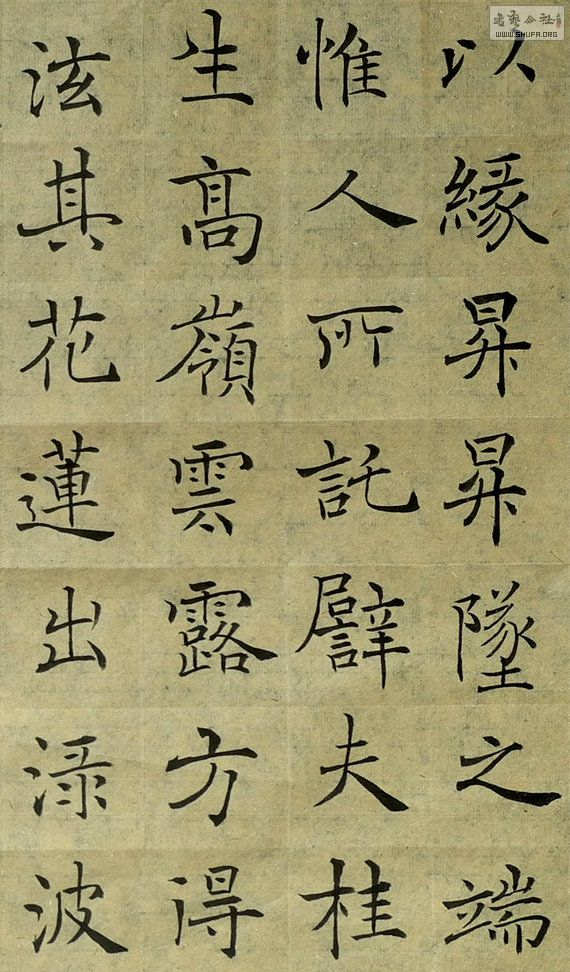 以緣昇昇墜之端
惟人所託譬夫桂
生髙嶺雲露方得
泫其花蓮出渌波
書藝公社
WWW.SHUFA.ORG